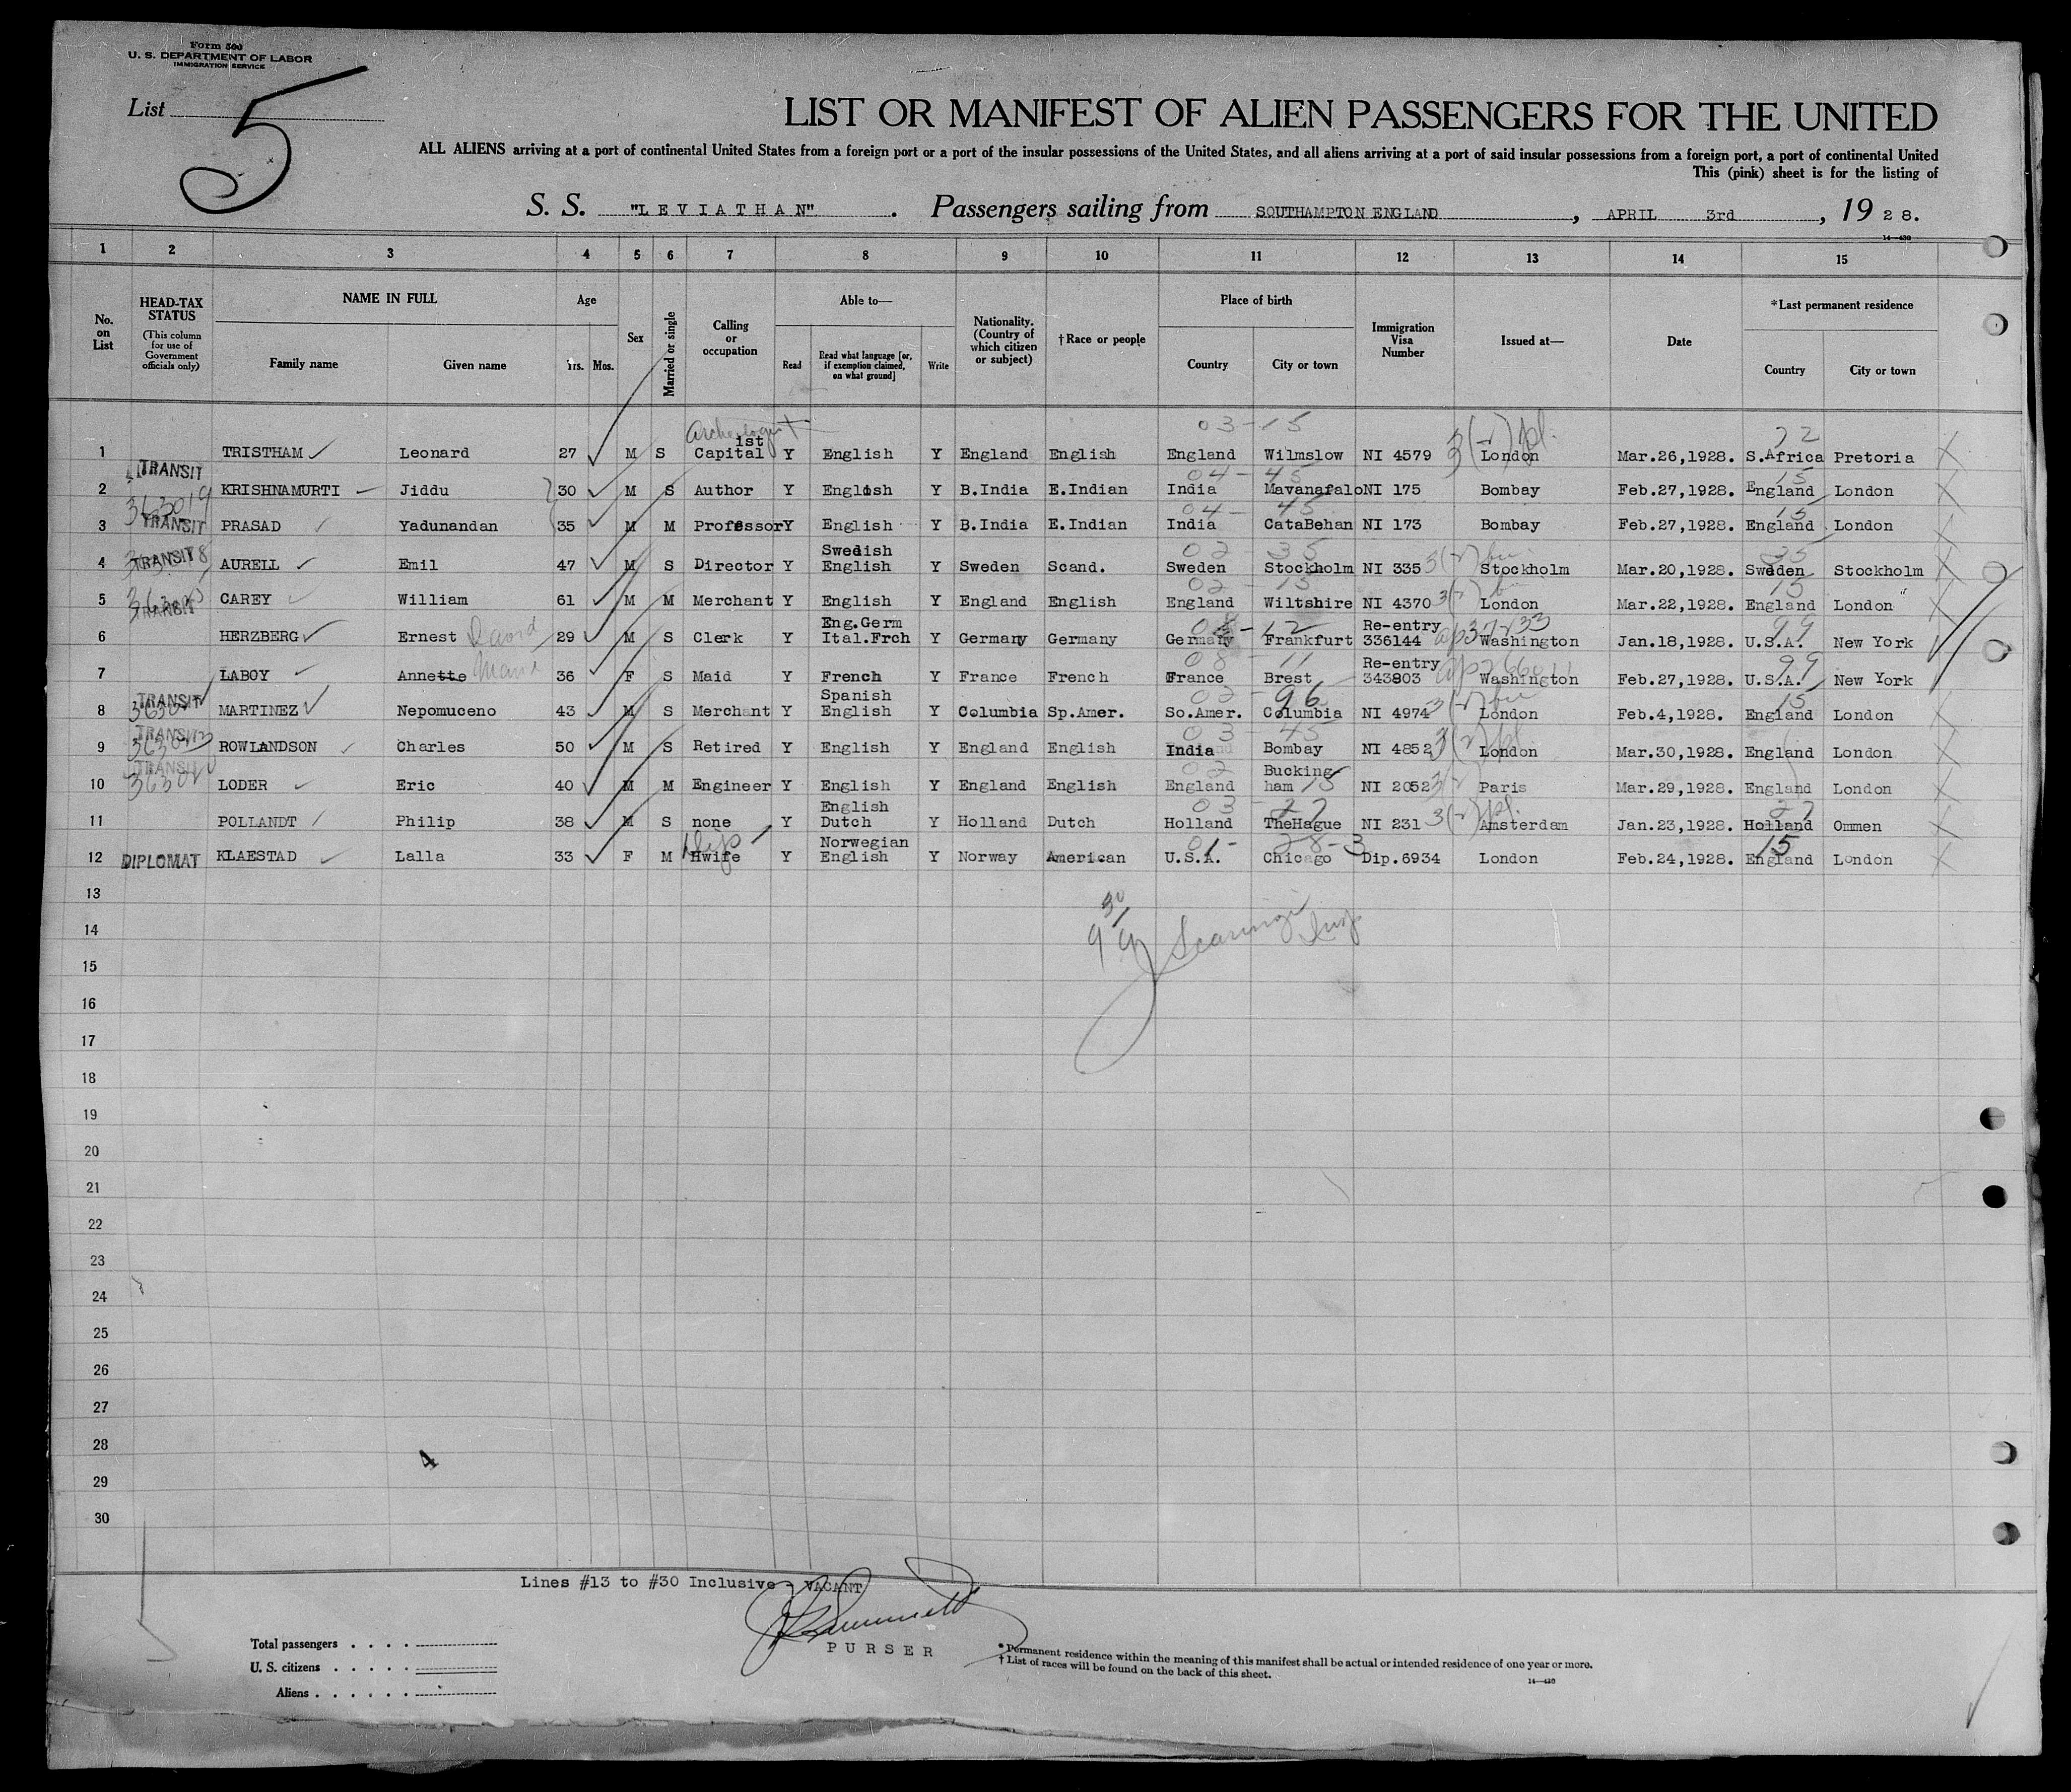 Form 500
U. S. DEPARTMENT OF LABOR
IMMIGRATION SERVICE
List 5
LIST OR MANIFEST OF ALIEN PASSENGERS FOR THE UNITED
ALL ALIENS arriving at a port of continental United States from a foreign port or a port of the insular possessions of the United States, and all aliens arriving at a port of said insular possessions from a foreign port, a port of continental United
This (pink) sheet is for the listing of
S. S. "LEVIATHAN". Passengers sailing from SOUTHAMPTON ENGLAND, APRIL 3rd, 1928.
14—430
1 2 3 4 5 6 7 8 9 10 11 12 13 14 15
No. on List
HEAD-TAX STATUS (This column for use of Government officials only)
NAME IN FULL
Family name Given name
Age
Yrs. Mos.
Sex
Married or single
Calling or occupation
Able to—
Read Read what language [or, if exemption claimed, on what ground] Write
Nationality. (Country of which citizen or subject)
†Race or people
Place of birth
Country City or town
Immigration Visa Number
Issued at—
Date
*Last permanent residence
Country City or town
03-15 22
1 TRISTHAM Leonard 27 M S Archeologist 1st Capital Y English Y England English England Wilmslow NI 4579 London Mar.26,1928. S.Africa Pretoria
TRANSIT 04-45 15
2 KRISHNAMURTI Jiddu 30 M S Author Y English Y B.India E.Indian India Mavanafalo NI 175 Bombay Feb.27,1928. England London
363019 TRANSIT 04-45 15
3 PRASAD Yadunandan 35 M M Professor Y English Y B.India E.Indian India CataBehan NI 173 Bombay Feb.27,1928. England London
TRANSIT 02-35 35
4 AURELL Emil 47 M S Director Y Swedish English Y Sweden Scand. Sweden Stockholm NI 335 Stockholm Mar.20,1928. Sweden Stockholm
TRANSIT 02-15 15
5 CAREY William 61 M M Merchant Y English Y England English England Wiltshire NI 4370 London Mar.22,1928. England London
12 99
6 HERZBERG Ernest David 29 M S Clerk Y Eng.Germ Ital.Frch Y Germany Germany Germany Frankfurt Re-entry 336144 Washington Jan.18,1928. U.S.A. New York
08-11 99
7 LABOY Annette Marie 36 F S Maid Y French Y France French France Brest Re-entry 343803 Washington Feb.27,1928. U.S.A. New York
TRANSIT 02-96 15
8 MARTINEZ Nepomuceno 43 M S Merchant Y Spanish English Y Columbia Sp.Amer. So.Amer. Columbia NI 4974 London Feb.4,1928. England London
TRANSIT 03-45
9 ROWLANDSON Charles 50 M S Retired Y English Y England English India Bombay NI 4852 London Mar.30,1928. England London
TRANSIT 02
10 LODER Eric 40 M M Engineer Y English Y England English England Buckingham 15 NI 2052 Paris Mar.29,1928. England London
03-27 27
11 POLLANDT Philip 38 M S none Y English Dutch Y Holland Dutch Holland TheHague NI 231 Amsterdam Jan.23,1928. Holland Ommen
01-28-3 15
12 DIPLOMAT KLAESTAD Lalla 33 F M Dip Hwife Y Norwegian English Y Norway American U.S.A. Chicago Dip.6934 London Feb.24,1928. England London
13
14
15
16
17
18
19
20
21
22
23
24
25
26
27
28
4
29
30
Lines #13 to #30 Inclusive - VACANT
PURSER
Total passengers
U. S. citizens
Aliens
* Permanent residence within the meaning of this manifest shall be actual or intended residence of one year or more.
† List of races will be found on the back of this sheet.
14—430